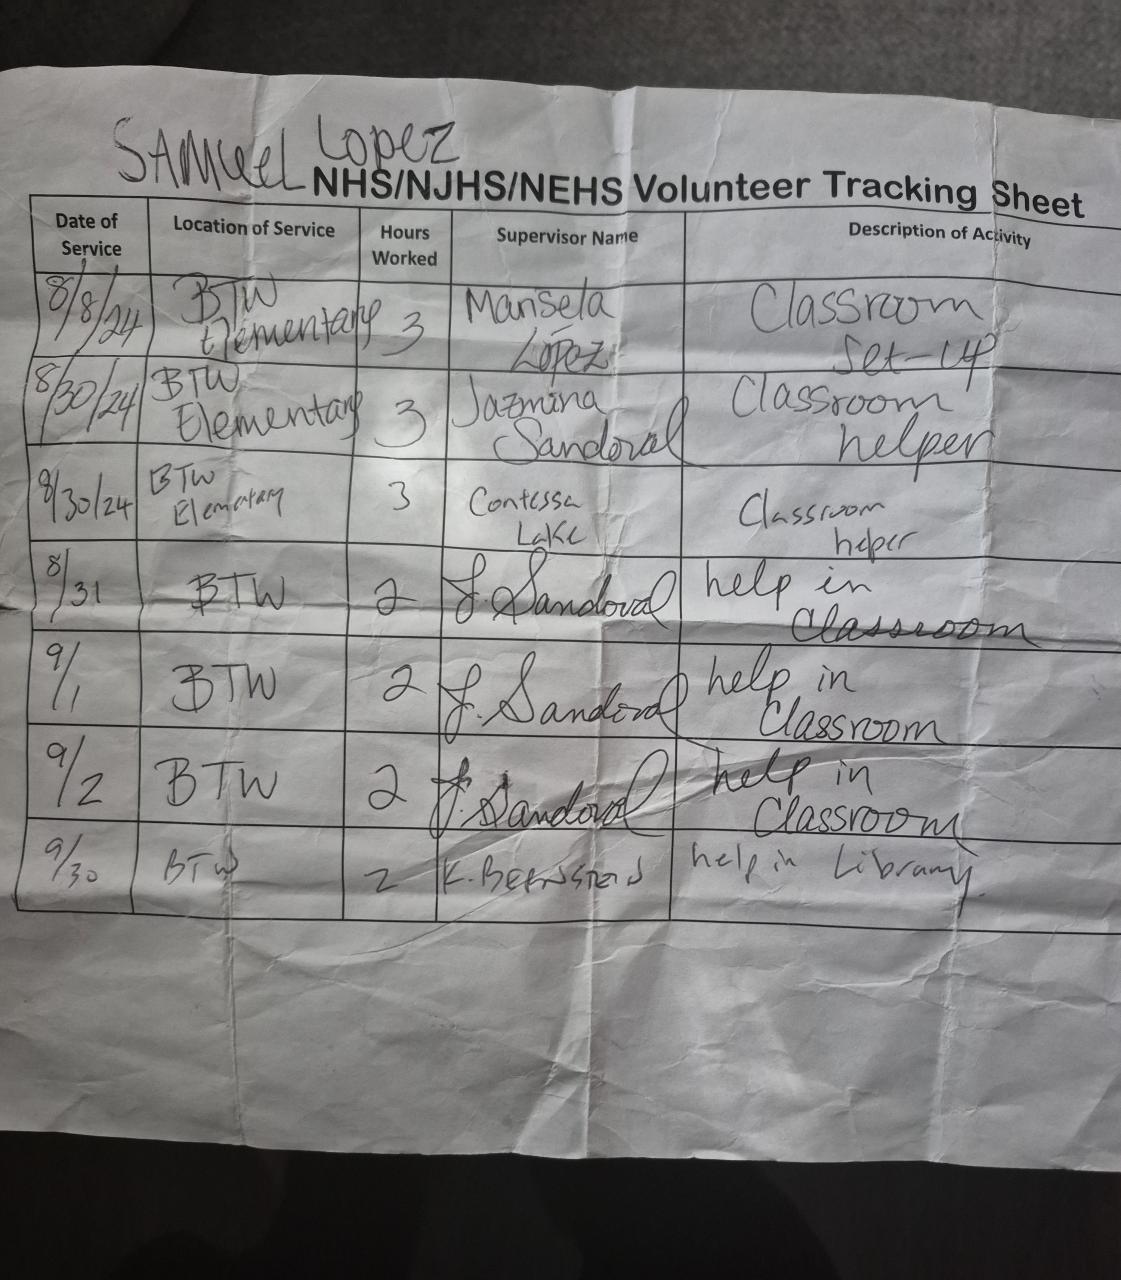 SAMUEL Lopez
NHS/NJHS/NEHS Volunteer Tracking Sheet
Date of Service Location of Service Hours Worked Supervisor Name Description of Activity
8/8/24 BTW Elementary 3 Marisela López Classroom Set-up
8/30/24 BTW Elementary 3 Jazmina Sandoval Classroom helper
8/30/24 BTW Elementary 3 Contessa Lake Classroom helper
8/31 BTW 2 J. Sandoval help in Classroom
9/1 BTW 2 J. Sandoval help in Classroom
9/2 BTW 2 J. Sandoval help in Classroom
9/30 BTW 2 K. help in Library